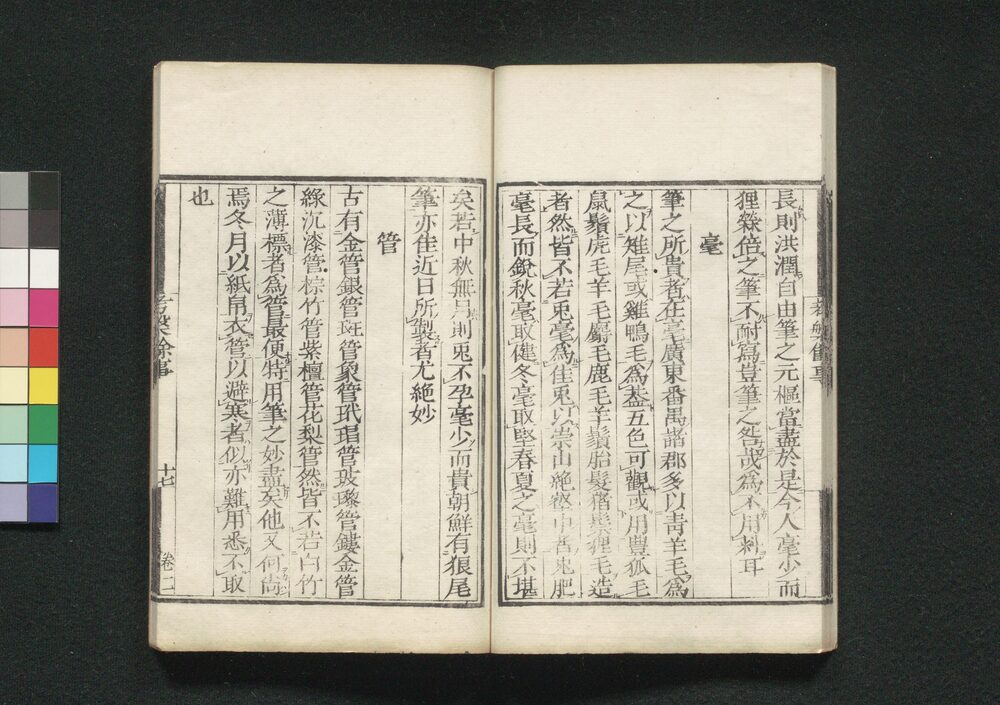 長則洪潤自由筆之元樞當盡於是今人毫少而
狸糝倍之筆不耐寫豈筆之咎哉爲不用料耳
毫
筆之所貴者在毫廣東番禺諸郡多以靑羊毛爲
之以雉尾或雞鴨毛爲蓋五色可觀或用豐狐毛
鼠鬚虎毛羊毛麝毛鹿毛羊鬚胎髮猪鬃狸毛造
者然皆不若兎毫爲佳兎以崇山絶壑中者兎肥
毫長而銳秋毫取健冬毫取堅春夏之毫則不堪
矣若中秋無月則兎不孕毫少而貴朝鮮有狼尾
筆亦佳近日所製者尤絶妙
管
古有金管銀管斑管象管玳瑁管玻瓈管鏤金管
綠沉漆管棕竹管紫檀管花梨管然皆不若白竹
之薄標者爲管最便特用筆之妙盡矣他又何尚
焉冬月以紙帛衣管以避寒者似亦難用悉不取
也
考槃餘事
十七
卷二